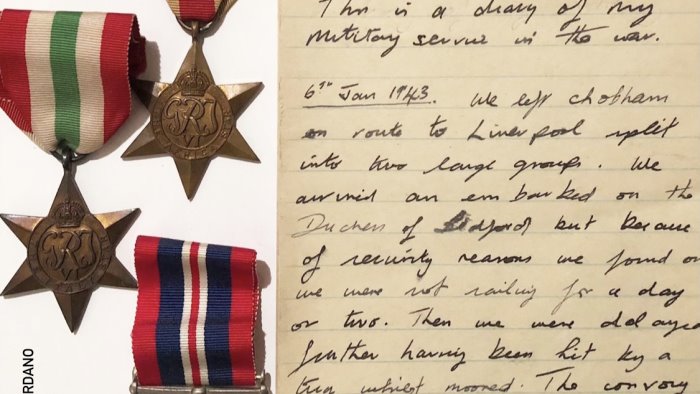 This is a diary of my
Military service in the war.
6th Jan 1943. We left Chobham
on route to Liverpool split
into two large groups. We
arrived an embarked on the
Duchess of Bedford but because
of security reasons we found
we were not sailing for a day
or two. Then we were delayed
further having been hit by a
tug whilst moored. The convoy
GRI
VI
GRI
VI
RDANO